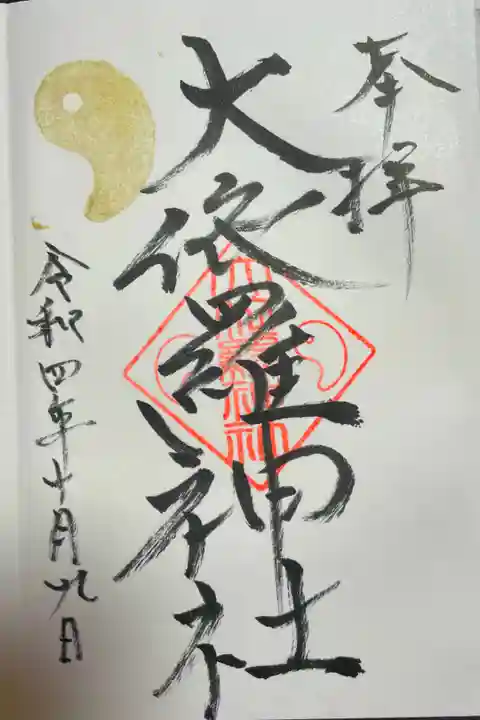 奉拝
大依羅神社
令和四年十月九日